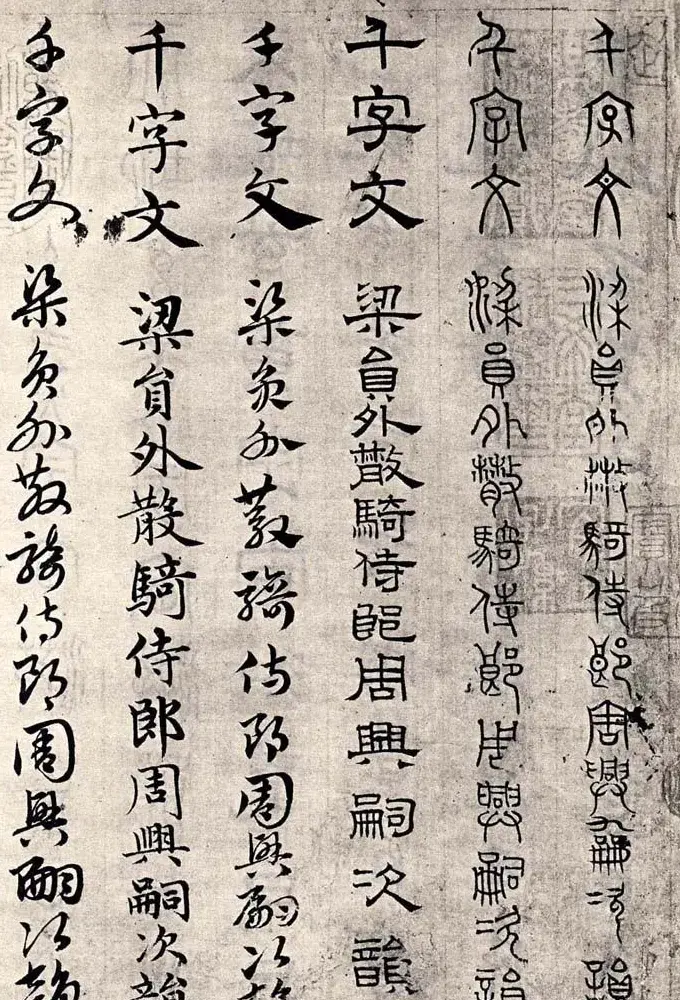 千字文 梁員外散騎侍郎周興嗣次韻
千字文 梁員外散騎侍郎周興嗣次韻
千字文 梁員外散騎侍郎周興嗣次韻
千字文 梁員外散騎侍郎周興嗣次韻
千字文 梁員外散騎侍郎周興嗣次韻
千字文 梁員外散騎侍郎周興嗣次韻